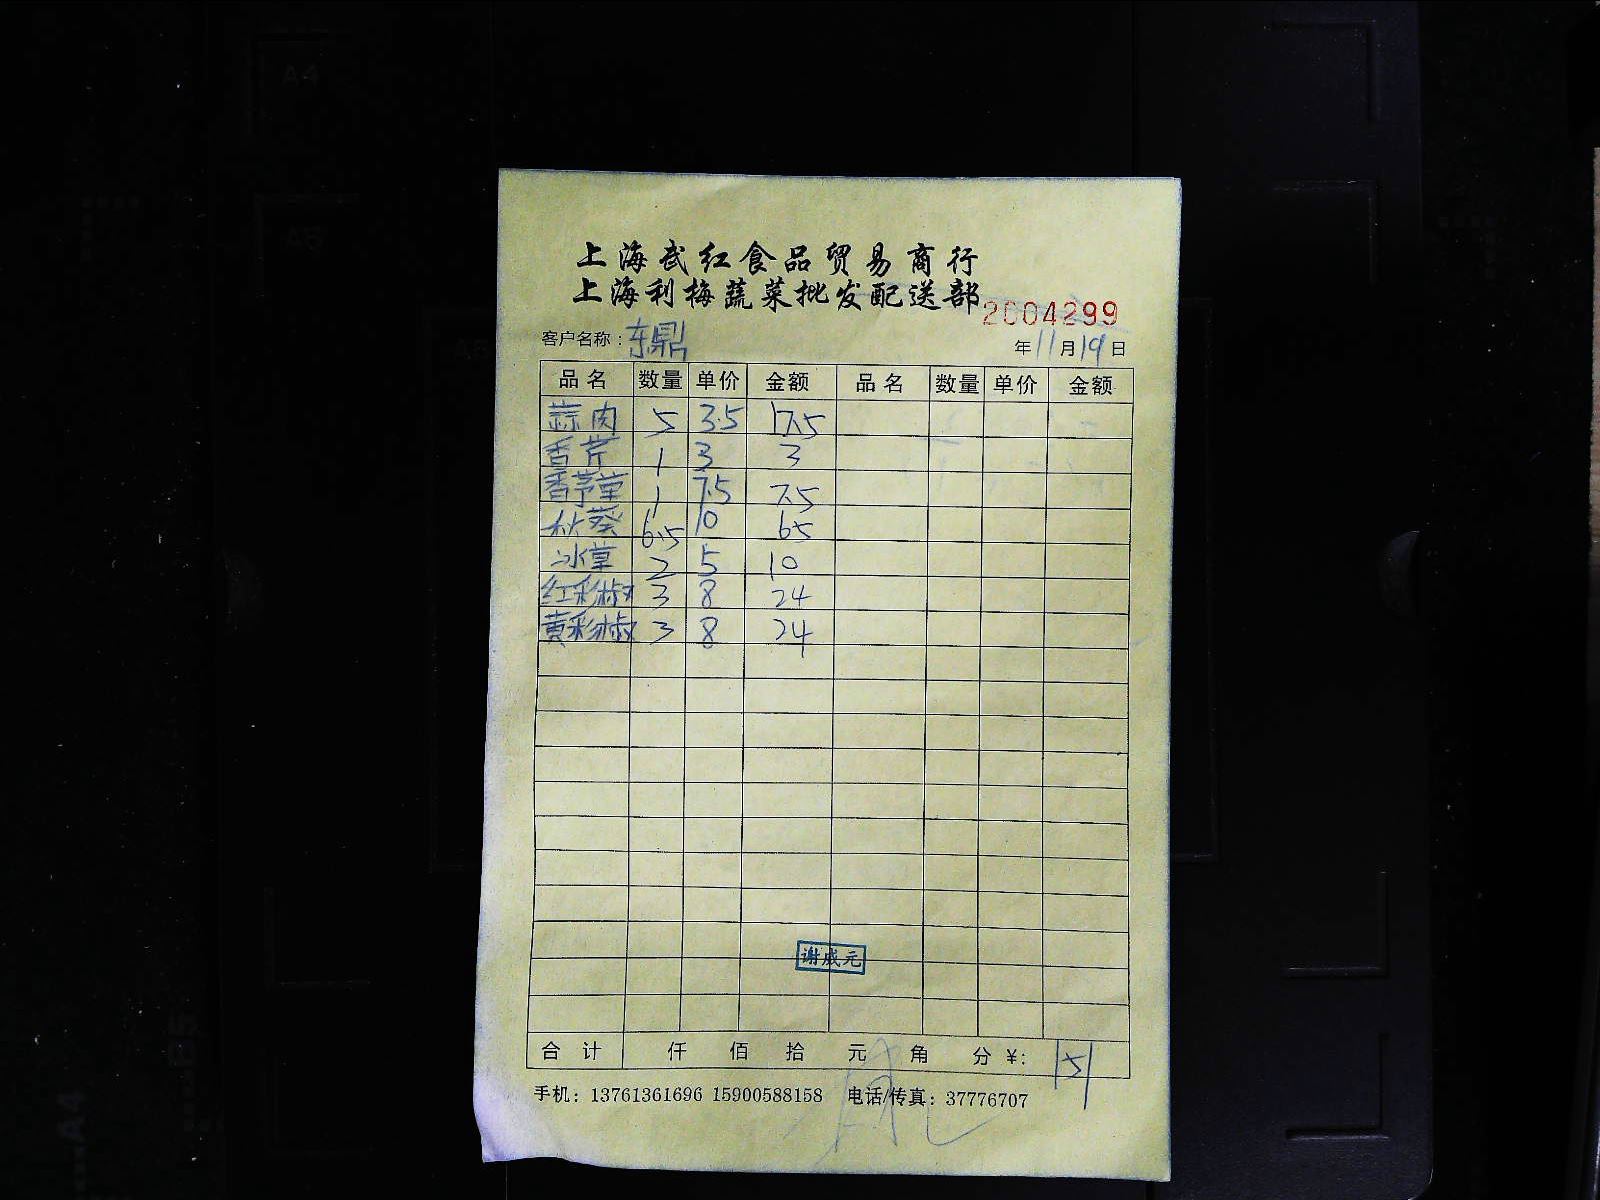 上海武红食品贸易商行
上海利梅蔬菜批发配送部
2004299
客户名称：东鼎 年11月19日
品名 数量 单价 金额 品名 数量 单价 金额
蒜肉 5 3.5 17.5
香芹 1 3 3
香茅草 1 7.5 7.5
秋葵 6.5 10 65
冰草 2 5 10
红彩椒 3 8 24
黄彩椒 3 8 24
谢威元
合计 仟 佰 拾 元 角 分 ¥: 151
手机：13761361696 15900588158 电话/传真：37776707